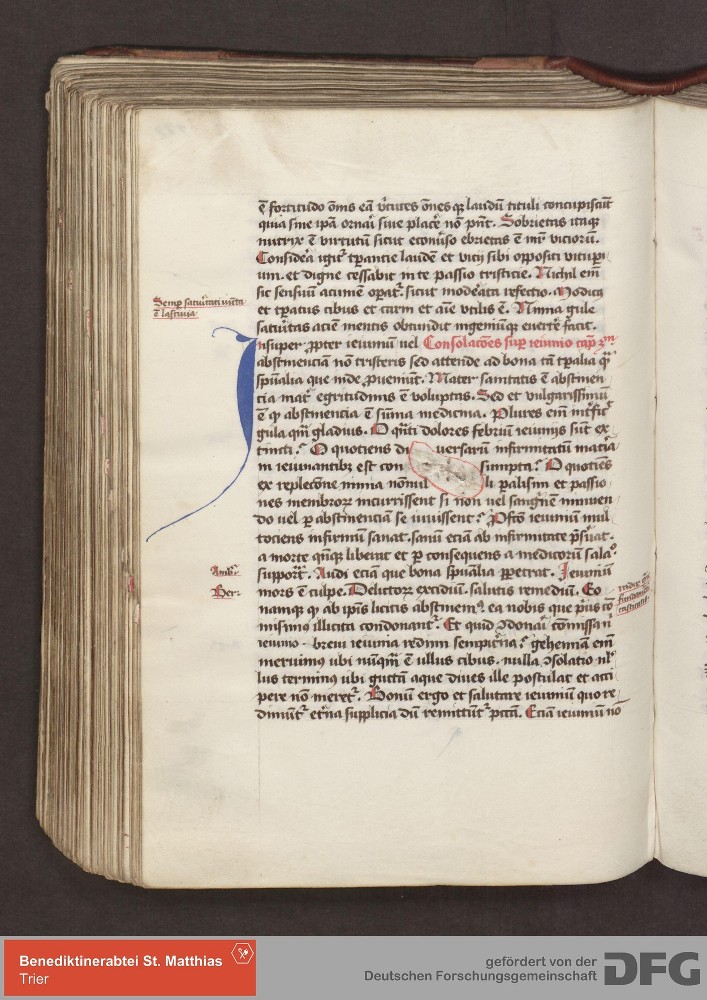 ē fortitudo om̄is eā v̄tutes om̄es q̄ laudū tituli concupiscūt
quia sine ipā ornaī siue placē nō pn̄t. Sobrietas itaq̄
nutrix ē virtutū sicut econūso ebrietas ē mr̄ vicioru̅.
Considera igit᷑ tꝑantie laudē et vicij sibi oppositi vitupi
um. et digne cessabit in te passio tristicie. Nichil em̄
sic sensuū acumē oꝑat᷑. sicut mod̓ata refectio. Modica
et tꝑatus cibus et carni et aīe vtilis ē. Nimia gule
saturitas aciē mentis obtundit ingeniūq̄ euert̓e facit.
Insuper ꝓpter ieiuniū uel Consolac̄oēs suꝑ ieiunio cap̄ 3m̄
abstinenciā nō tristeris sed attende ad bona tā tꝑalia q̄
sp̄ualia que inde ꝓueniūt. Mater sanitatis ē abstinen
cia mat᷑ egritudinis ē voluptas. Sed et vulgarissimū
ē q̄ abstinencia ē sūma medicina. Plures em̄ int̓fic̄
gula qm̄ gladius. O q̄nti dolores febriū ieiunijs sūt ex
tincti? O quotiens di uersarū infirmitatū mat̓ia
in ieiunantibꝫ est con sumpta? O quotiēs
ex replec̄one nimia nōnul li palisim et passio
nes membroꝝ incurrissent si non uel sangnē minuen
do uel ꝑ abstinenciā se iuuissent? Ꝓfc̄o ieiuniū mul
tociens infirmū sanat. sanū eciā ab infirmitate p̄s̓uat.
a morte q̄nꝫ liberat et ꝑ consequens a medicorū sala᷑
support᷑. Audi eciā que bona sp̄ualia ꝑpetrat. Ieiuniū
mors ē culpe. Delictoꝝ excidiū. salutis remediū. Eo
namqꝫ q̄ ab ip̄is licitis abstinemꝰ. ea nobis que priꝰ cō
misimꝰ illicita condonant᷑. Et quid ꝯdonaī cōmissa nī
ieiunio. breui ieiunia redimi sempit̓na? gehennā em̄
meruimꝰ ubi nūqm̄ ē ullus cibus. nulla ꝯsolatio nl̓
lus terminꝰ ubi guttā aque diues ille postulat et acci
pere non meret᷑. Bonū ergo et salutare ieiuniū quo re
dimūt᷑ et̓na supplicia dū remittūt᷑ pc̄cā. Eciā ieiuniū nō
Semꝑ saturitati iūcta
ē lasciuia
Ambr̄.
Ber.
Benediktinerabtei St. Matthias
Trier
gefördert von der
Deutschen Forschungsgemeinschaft
DFG